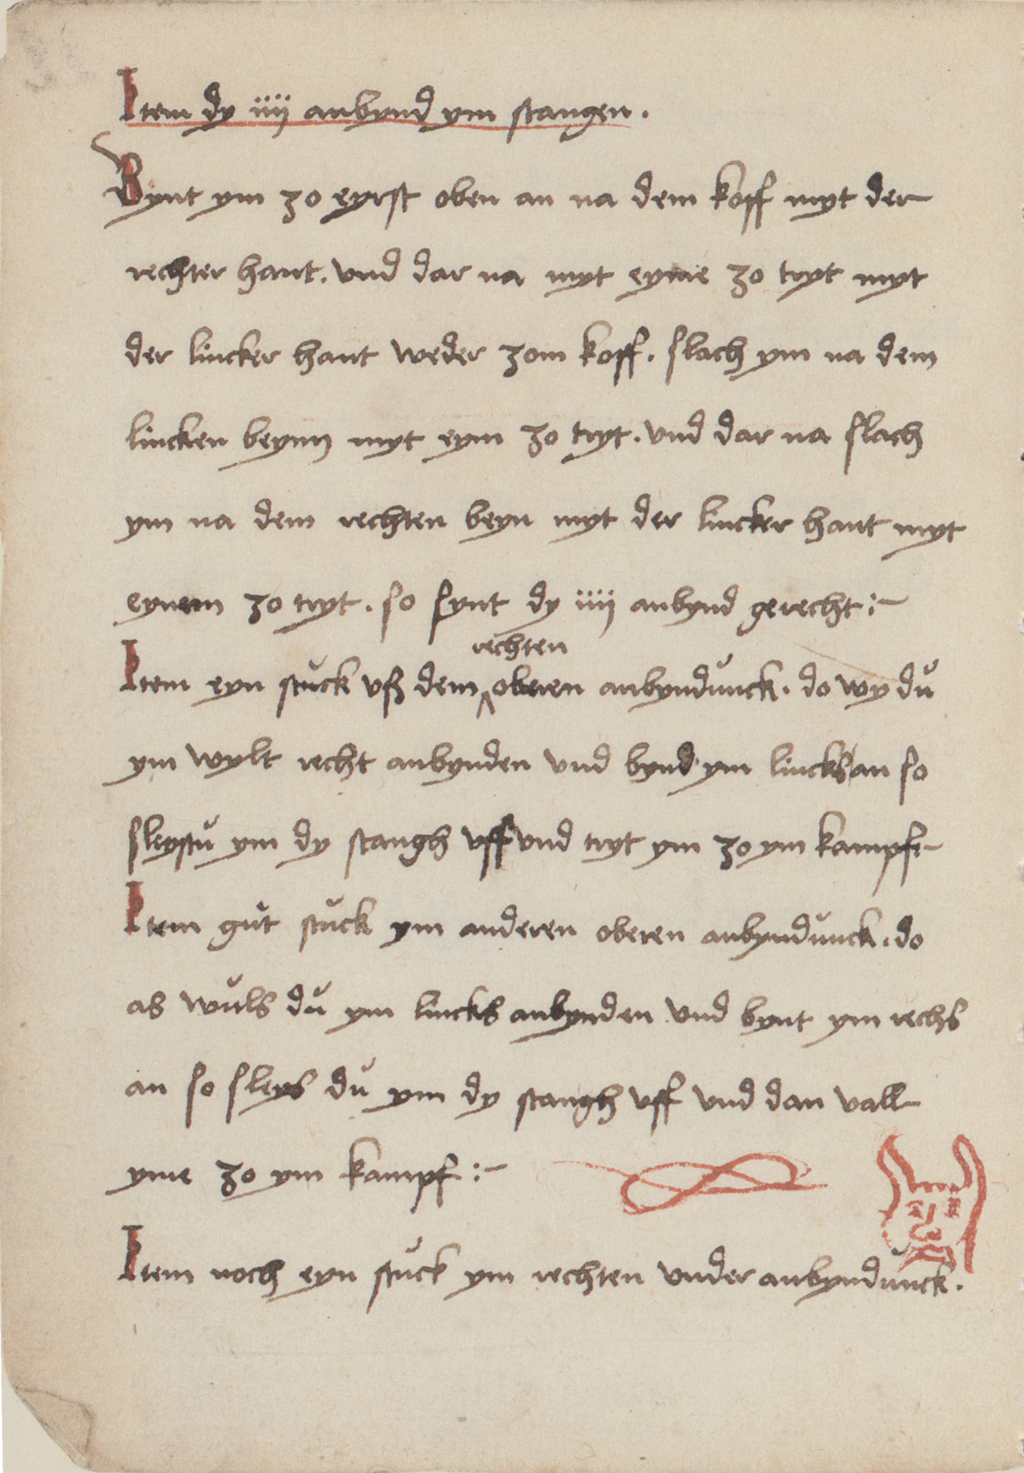 Item dy iiij anbynd ym stangen.
Bynt ym zo eyrst oben an na dem koff myt der
rechter hant. vnd dar na myt eyme zo tryt myt
der lincker hant weder zom koff. slach ym na dem
lincken beynn myt eym zo tryt. vnd dar na slach
ym na dem rechten beyn myt der lincker hant myt
eynem zo tryt. so synt dy iiij anbynd gerecht :~
rechten
Item eyn stůck vß dem ^ oberen anbyndůnck. do wy dů
ym wylt recht anbynden vnd bynd ym lincks an so
sleystů ym dy stangh vff vnd tryt ym zo ym kampff
Item gůt stůck ym anderen oberen anbyndůnck. do
as wůls dů ym lincks anbynden vnd bynt ym rechs
an so sleys dů ym dy stangh vff vnd dan vall
yme zo ym kampff :~
Item noch eyn stůck ym rechten vnder anbyndůnck.